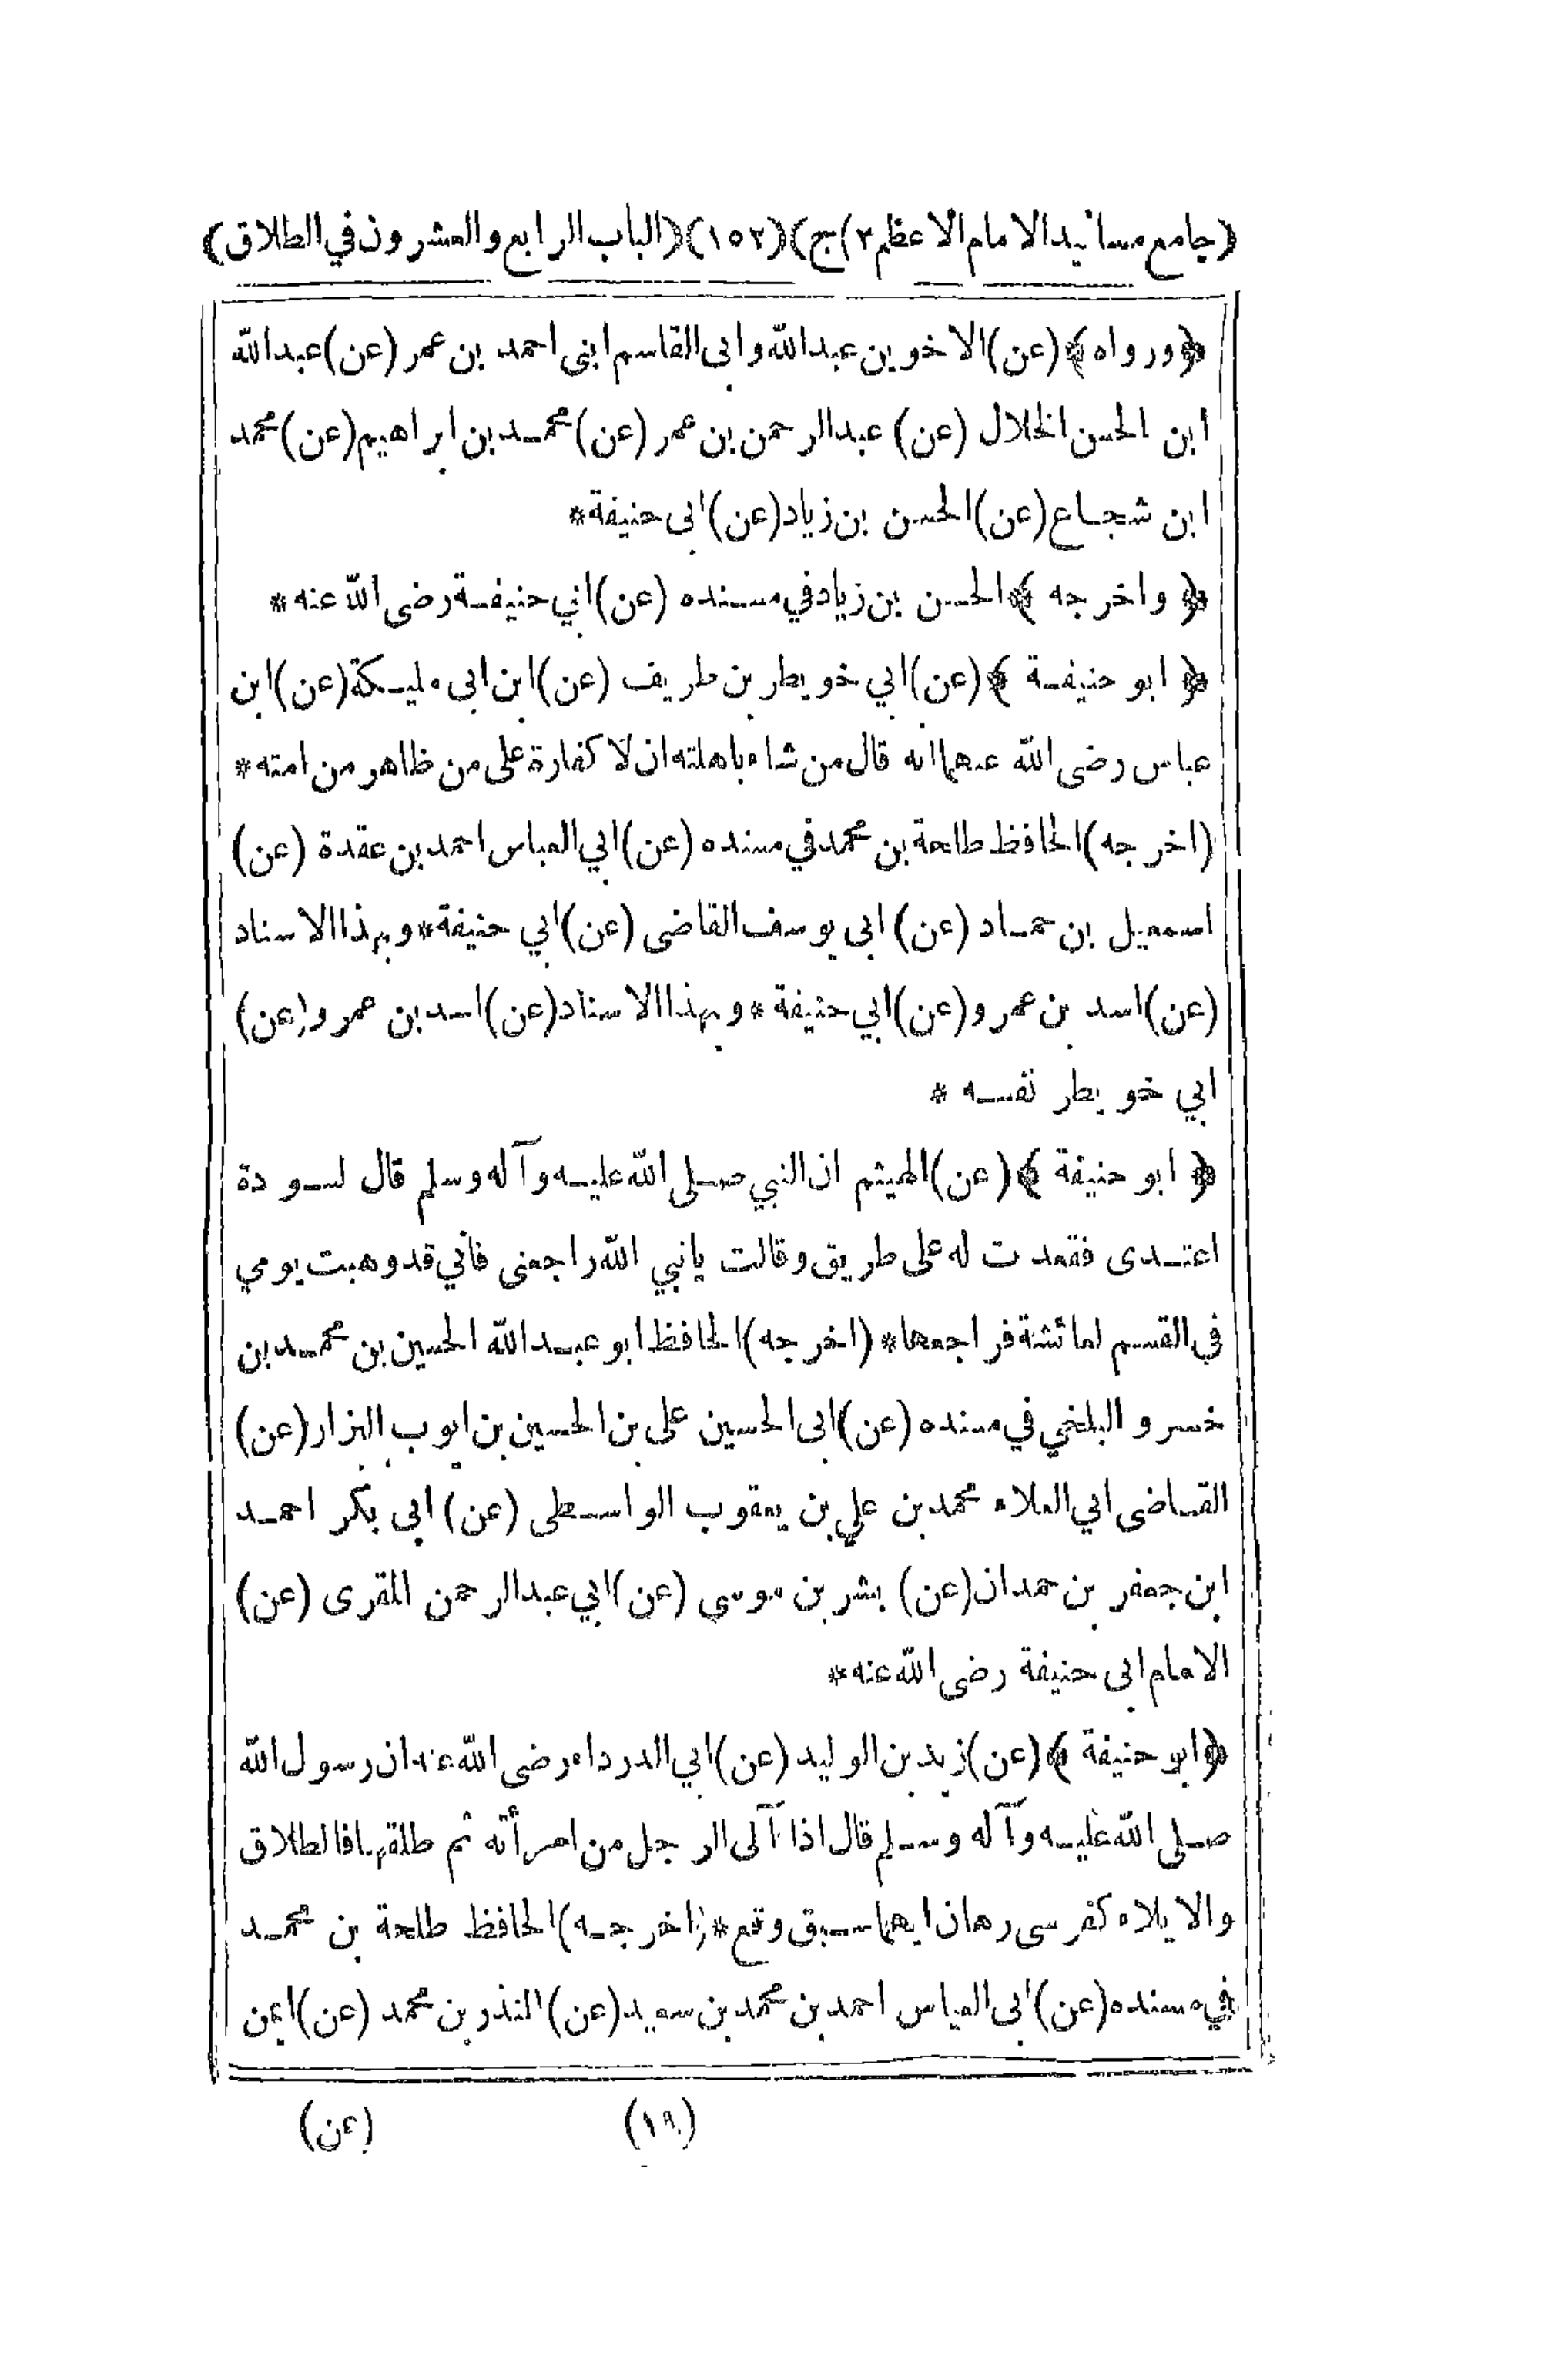 (جامع مسانيد الامام الاعظم ٢)ج)(١٥٢)(الباب الرابع والعشرون في الطلاق)
﴿ورواه﴾(عن)الاخوين عبدالله وابى القاسم ابنى احمد بن عمر (عن)عبدالله
ابن الحسن الخلال (عن) عبدالرحمن بن عمر (عن)محمد بن ابراهيم(عن)محمد
ابن شجاع(عن)الحسن بن زياد(عن)ابى حنيفة*
﴿واخرجه﴾الحسن بن زياد في مسنده (عن)ابي حنيفة رضى الله عنه*
﴿ابو حنيفة﴾(عن)ابي خويطر بن طريف (عن)ابن ابى مليكة(عن)ابن
عباس رضى الله عنهما انه قال من شاء باهلته ان لا كفارة على من ظاهر من امته*
(اخرجه)الحافظ طلحة بن محمد في مسنده (عن)ابي العباس احمد بن عقدة (عن)
اسمعيل بن حماد (عن) ابى يوسف القاضى (عن)ابي حنيفة*وبهذا الاسناد
(عن)اسد بن عمرو(عن)ابي حنيفة*وبهذا الاسناد(عن)اسد بن عمرو(عن)
ابي خويطر نفسه *
﴿ابو حنيفة﴾(عن)الهيثم ان النبي صلى الله عليه وآله وسلم قال لسودة
اعتدى فقعدت له على طريق وقالت يانبي الله راجعنى فاني قد وهبت يومي
في القسم لعائشة فراجعها*(اخرجه)الحافظ ابو عبدالله الحسين بن محمد بن
خسرو البلخي في مسنده (عن)ابى الحسين على بن الحسين بن ايوب البزار(عن)
القاضى ابي العلاء محمد بن علي بن يعقوب الواسطى (عن) ابى بكر احمد
ابن جعفر بن حمدان(عن) بشر بن موسي (عن)ابي عبدالرحمن المقرى (عن)
الامام ابى حنيفة رضى الله عنه*
﴿ابو حنيفة﴾(عن)زيد بن الوليد (عن)ابي الدرداء رضى الله عنه ان رسول الله
صلى الله عليه وآله وسلم قال اذا آلى الرجل من امرأته ثم طلقها فالطلاق
والايلاء كفرسى رهان ايهما سبق وقع*(اخرجه)الحافظ طلحة بن محمد
في مسنده(عن)ابى العباس احمد بن محمد بن سعيد(عن)المنذر بن محمد (عن)ايمن
(١٩) (عن)